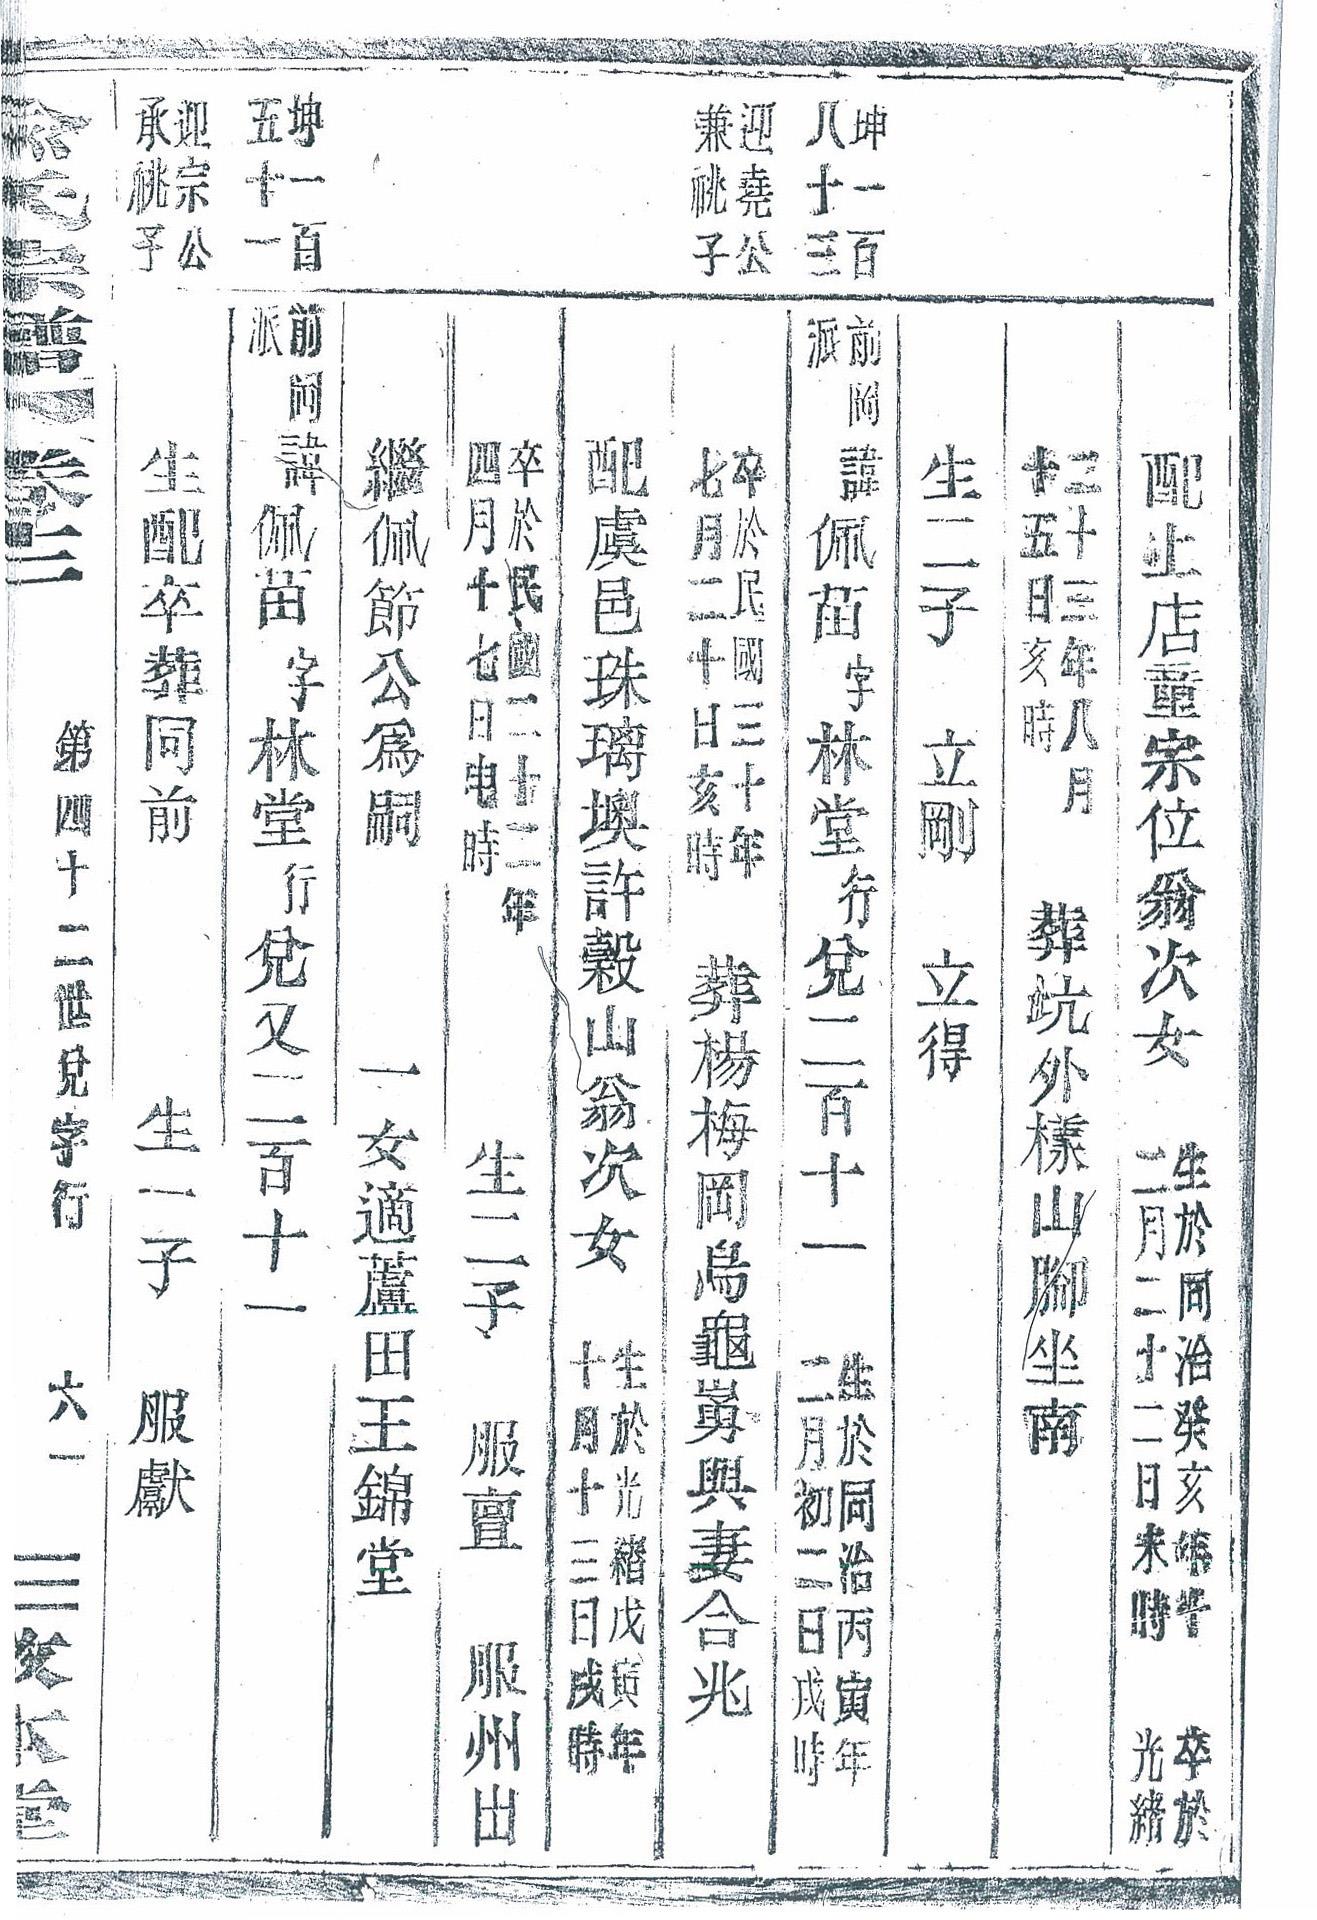 配上店童宗位翁次女 生於同治癸亥年十二月二十二日未時 卒於光緒
三十三年八月十五日亥時 葬㘬外樣山腳坐南
生二子 立剛 立得
坤一百八十三 前岡派 諱佩苗字林堂行兌二百十一 生於同治丙寅年二月初二日戌時
迎堯公兼祧子 卒於民國三十年七月二十日亥時 葬楊梅岡烏龜與妻合兆
配虞邑珠璃墺許穀山翁次女 生於光緒戊寅年十月十三日戌時
卒於民國二十二年四月十七日時 生二子 服亶 服州出
繼佩節公爲嗣 一女適蘆田王錦堂
坤一百五十一 前岡派 諱佩苗字林堂行兌又二百十一
迎宗公承祧子 生配卒葬同前 生一子 服獻
氏宗譜 卷三 第四十二世兌字行 六一 本堂